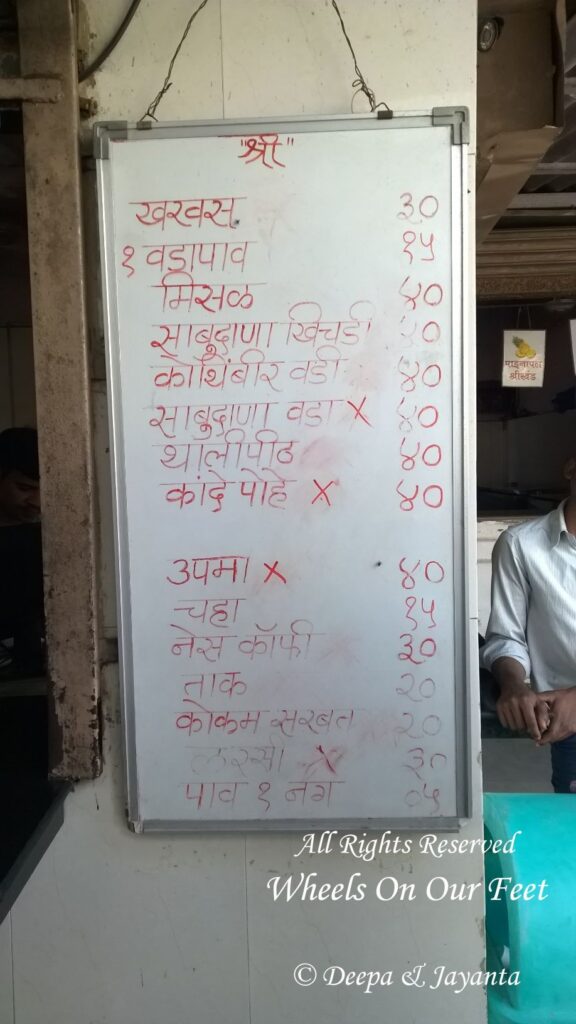 "श्री"
खरवस ३०
१ वडापाव १५
मिसळ ४०
साबुदाणा खिचडी ४०
कोथिंबीर वडी ४०
साबुदाणा वडा X ४०
थालीपीठ ४०
कांदे पोहे X ४०
उपमा X ४०
चहा १५
नेस कॉफी ३०
ताक २०
कोकम सरबत २०
लस्सी X ३०
पाव १ नग ०५
पाइनापल
श्रीखंड
All Rights Reserved
Wheels On Our Feet
© Deepa & Jayanta